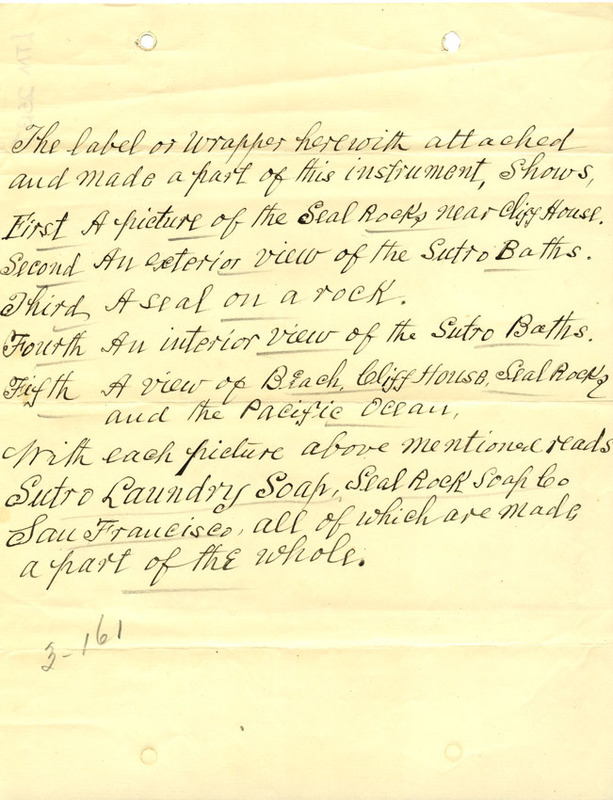 The label or wrapper herewith attached
and made a part of this instrument, Shows,
First A picture of the Seal Rocks near Cliff House.
Second An exterior view of the Sutro Baths.
Third, A seal on a rock.
Fourth An interior view of the Sutro Baths.
Fifth A view of Beach, Cliff House, Seal Rocks
and the Pacific Ocean,
With each picture above mentioned reads
Sutro Laundry Soap, Seal Rock Soap Co
San Francisco, all of which are made
a part of the whole.
3-161